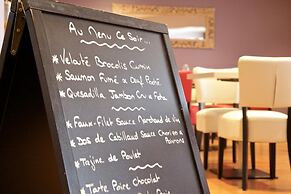 Au Menu Ce Soir...
* Velouté Brocolis Cumin
* Saumon Fumé & Oeuf Poché
* Quesadilla Jambon Cru & Feta
* Faux-Filet Sauce Marchand de Vin
* Dos de Cabillaud Sauce Chorizo &
Poivrons
* Tajine de Poulet
* Tarte Poire chocolat